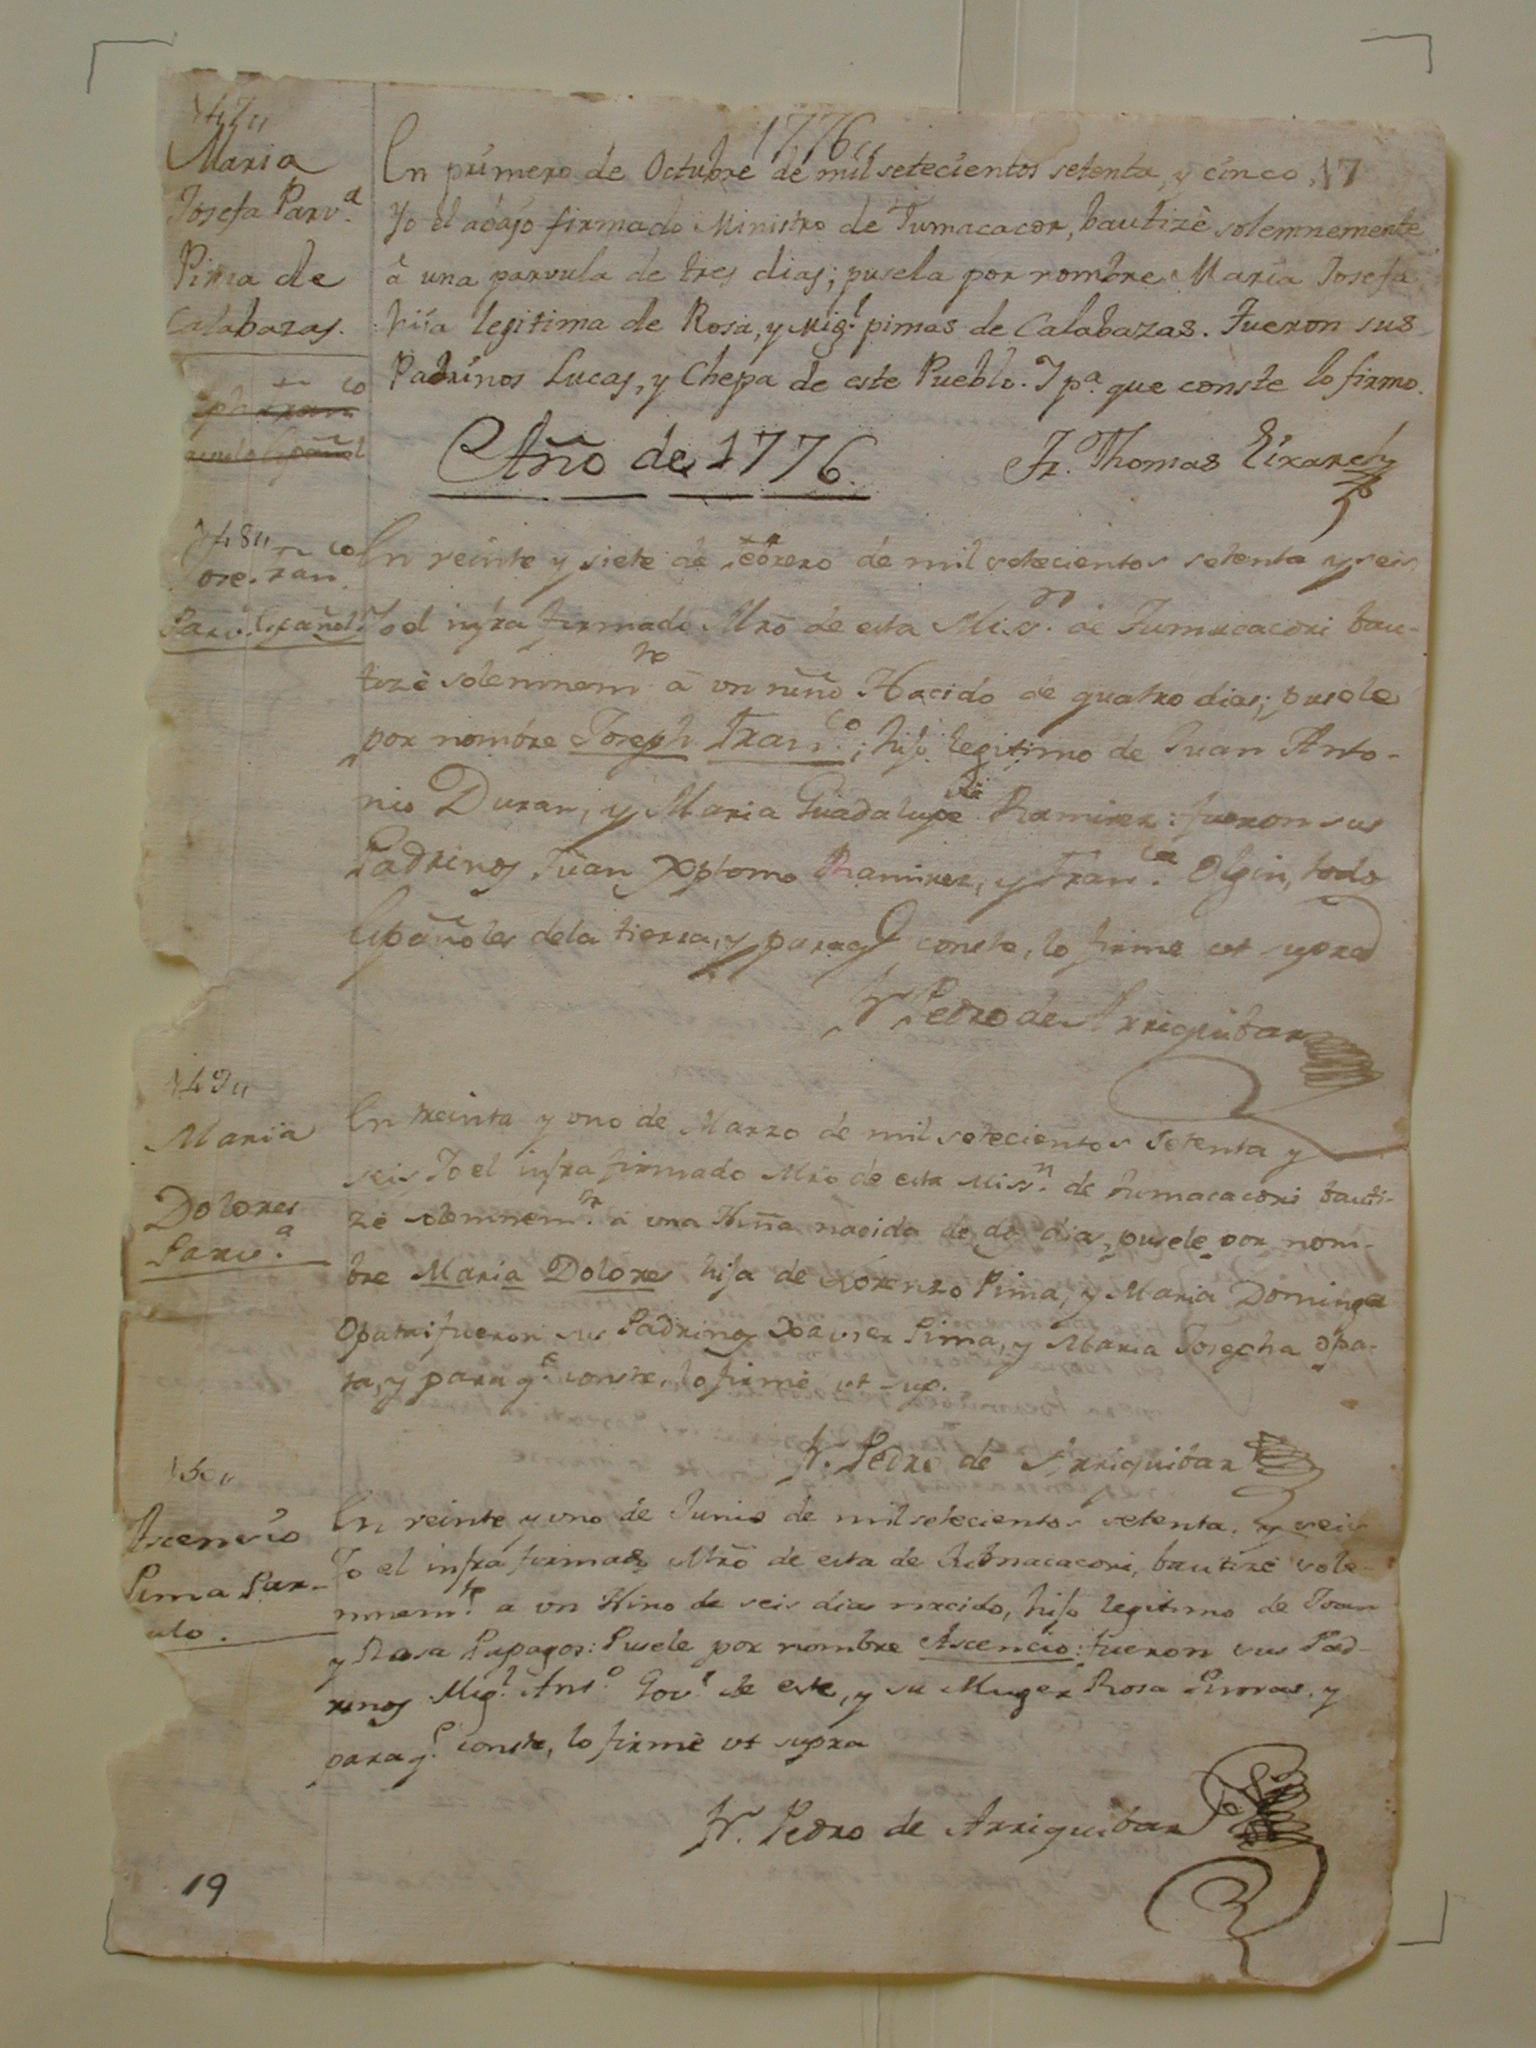 147,,
Maria
Josefa Parv.a
Pima de
Calabazas.
1776,,
En primero de Octubre de mil setecientos setenta, y cinco, 17
Yo el abajo firmado Ministro de Tumacacor, bautizè solemnemente
à una parvula de tres dias; pusela por nombre Maria Josefa
hija legitima de Rosa, y Mig.l pimas de Calabazas. Fueron sus
Padrinos Lucas, y Chepa de este Pueblo. Y p.a que conste lo firmo.
Fr. Thomas Eixarch
Año de 1776.
148,,
Jose Fran.co
Parv. Español
En veinte y siete de Febrero de mil setecientos setenta y seis
Yo el infra firmado Mrõ de esta Miss.n de Tumacacori bau-
tizè solemnem.te à un niño Nacido de quatro dias; pusele
por nombre Joseph Fran.co; hijo legitimo de Juan Anto-
nio Duran, y Maria Guadalupe Ramirez: fueron sus
Padrinos Juan Xptomo Ramirez, y Fran.ca Olguin, todo
Españoles dela tierra, y paraq conste, lo firme ut supra
Fr Pedro de Arriquibar
149,,
Maria
Dolores
Parv.a
En treinta y uno de Marzo de mil setecientos setenta y
seis Yo el infra firmado Mrõ de esta Miss.n de Tumacacori bauti-
zè solemnem.te à una Niña nacida de dos dias, pusele por nom-
bre Maria Dolores hija de Lorenzo Pima, y Maria Dominga
Opata: fueron sus Padrinos Xavier Pima, y Maria Josepha Opa-
ta, y paraq.e conste, lo firmè ut sup.
Fr. Pedro de Arriquibar
150,,
Ascensio
Pima Par-
vulo.
En veinte y uno de Junio de mil setecientos setenta, y seis
Yo el infra firmado Mrõ de esta de Tumacacori, bautizè sole-
mnem.te a un Nino de seis dias nacido, hijo legitimo de Juan
y Rosa Papagos: Pusele por nombre Ascencio: fueron sus Pad-
rinos Mig.l Ant.o Gov.r de este, y su Muger Rosa Pimas, y
paraq.e conste, lo firmè ut supra
Fr. Pedro de Arriquibar
19